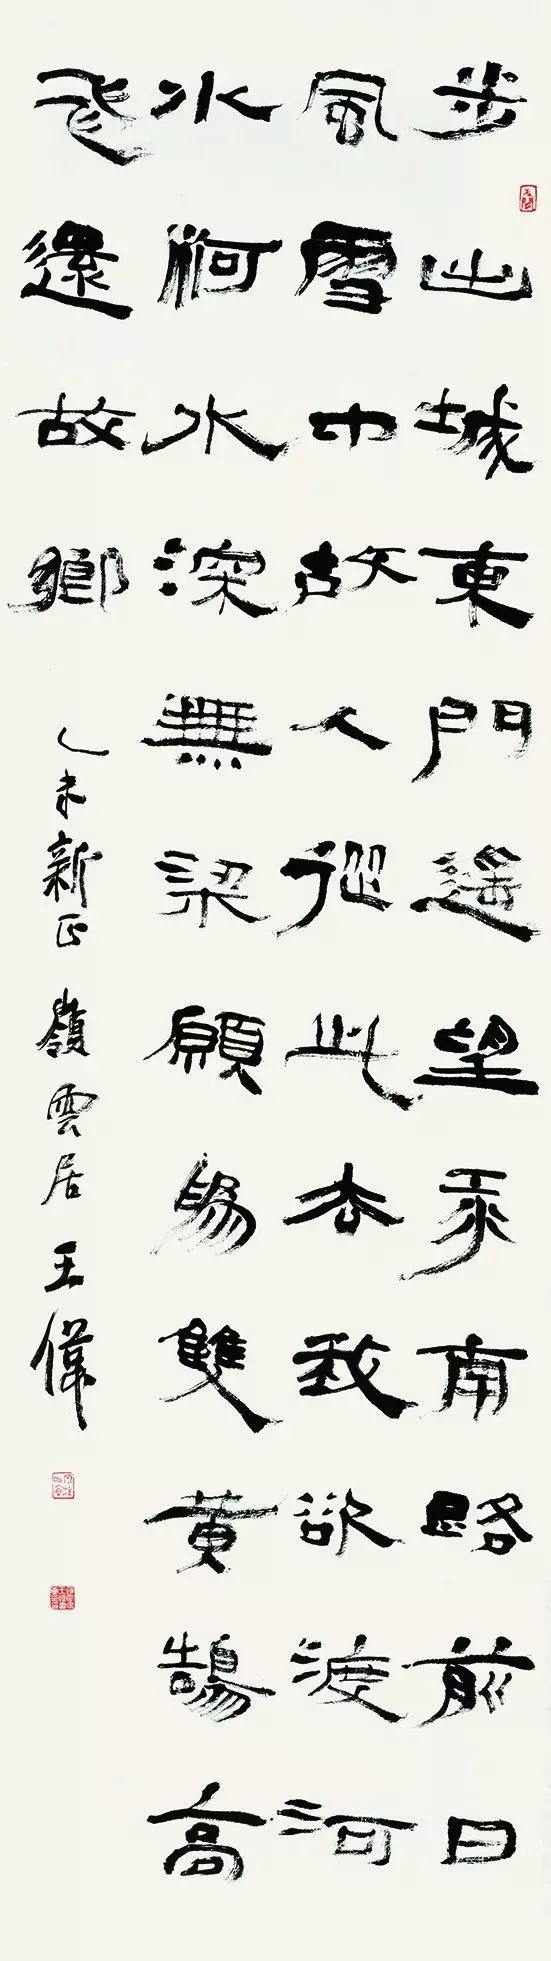 步出城東門遙望江南路前日
風雪中故人從此去我欲渡河
水河水深無梁願為雙黄鵠高
飛還故鄉
乙未新正 嶺雲居 王偉